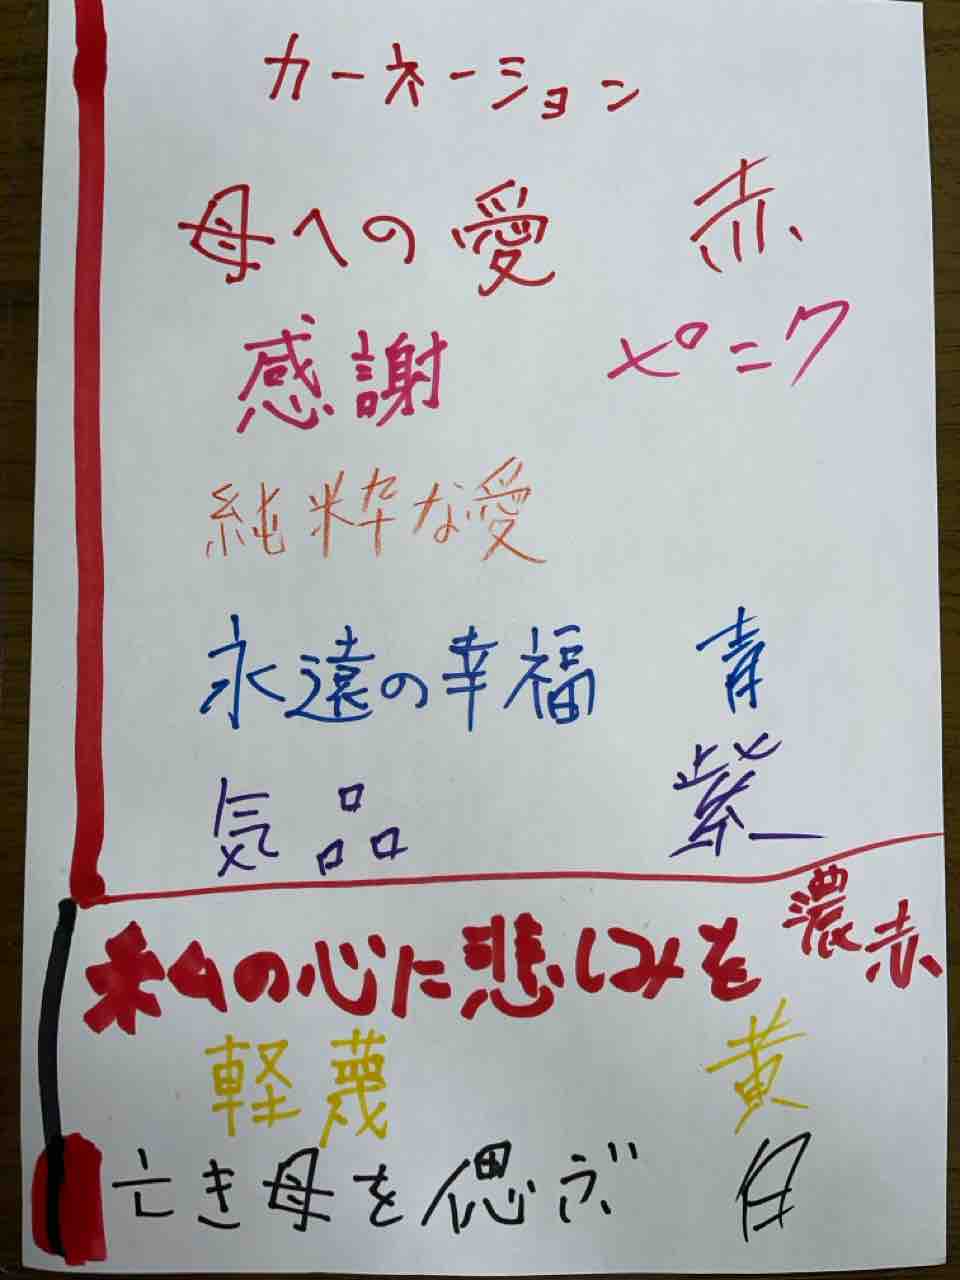 カーネーション
母への愛 赤
感謝 ピンク
純粋な愛
永遠の幸福 青
気品 紫
私の心に悲しみを 濃赤
軽蔑 黄
亡き母を偲ぶ 白